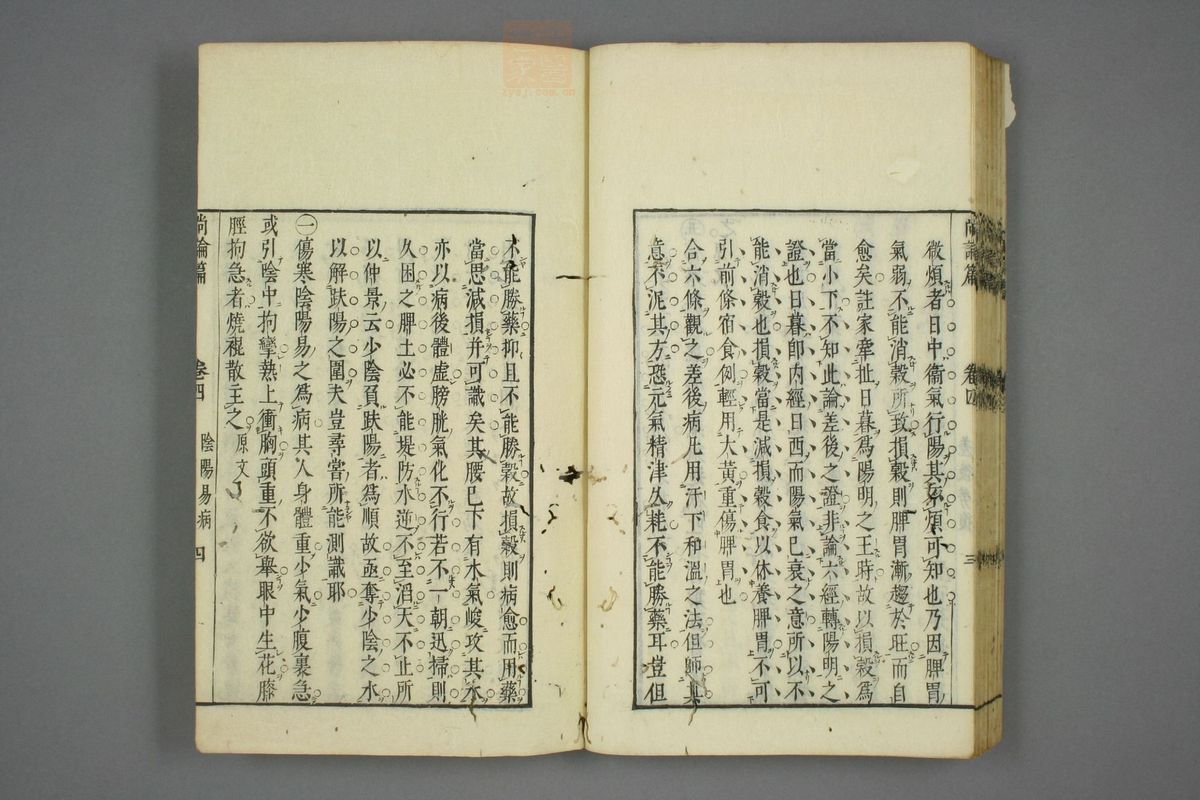 尚論篇 卷四 三
微煩者日中衞氣行陽其不煩可知也乃因脾胃
氣弱不能消穀所致損穀則脾胃漸趨於旺而自
愈矣註家牽扯日暮爲陽明之王時故以損穀爲
當小下不知此論差後之證非論六經轉陽明之
證也日暮卽內經日西而陽氣已衰之意所以不
能消穀也損穀當是減損穀食以休養脾胃不可
引前條宿食例輕用大黃重傷脾胃也
合六條觀之差後病凡用汗下和溫之法但師其
意不泥其方恐元氣精津久耗不能勝藥耳豈但
不能勝藥抑且不能勝穀故損穀則病愈而用藥
當思減損幷可識矣其腰已下有水氣峻攻其水
亦以病後體虛膀胱氣化不行若不一朝迅掃則
久困之脾土必不能堤防水逆不至滔天不止所
以仲景云少陰負趺陽者爲順故亟奪少陰之水
以解趺陽之圍夫豈尋常所能測識耶
㊀傷寒陰陽易之爲病其人身體重少氣少腹裏急
或引陰中拘攣熱上衝胸頭重不欲舉眼中生花膝
脛拘急者燒裩散主之原文
尚論篇 卷四 陰陽易病 四
zysj.com.cn